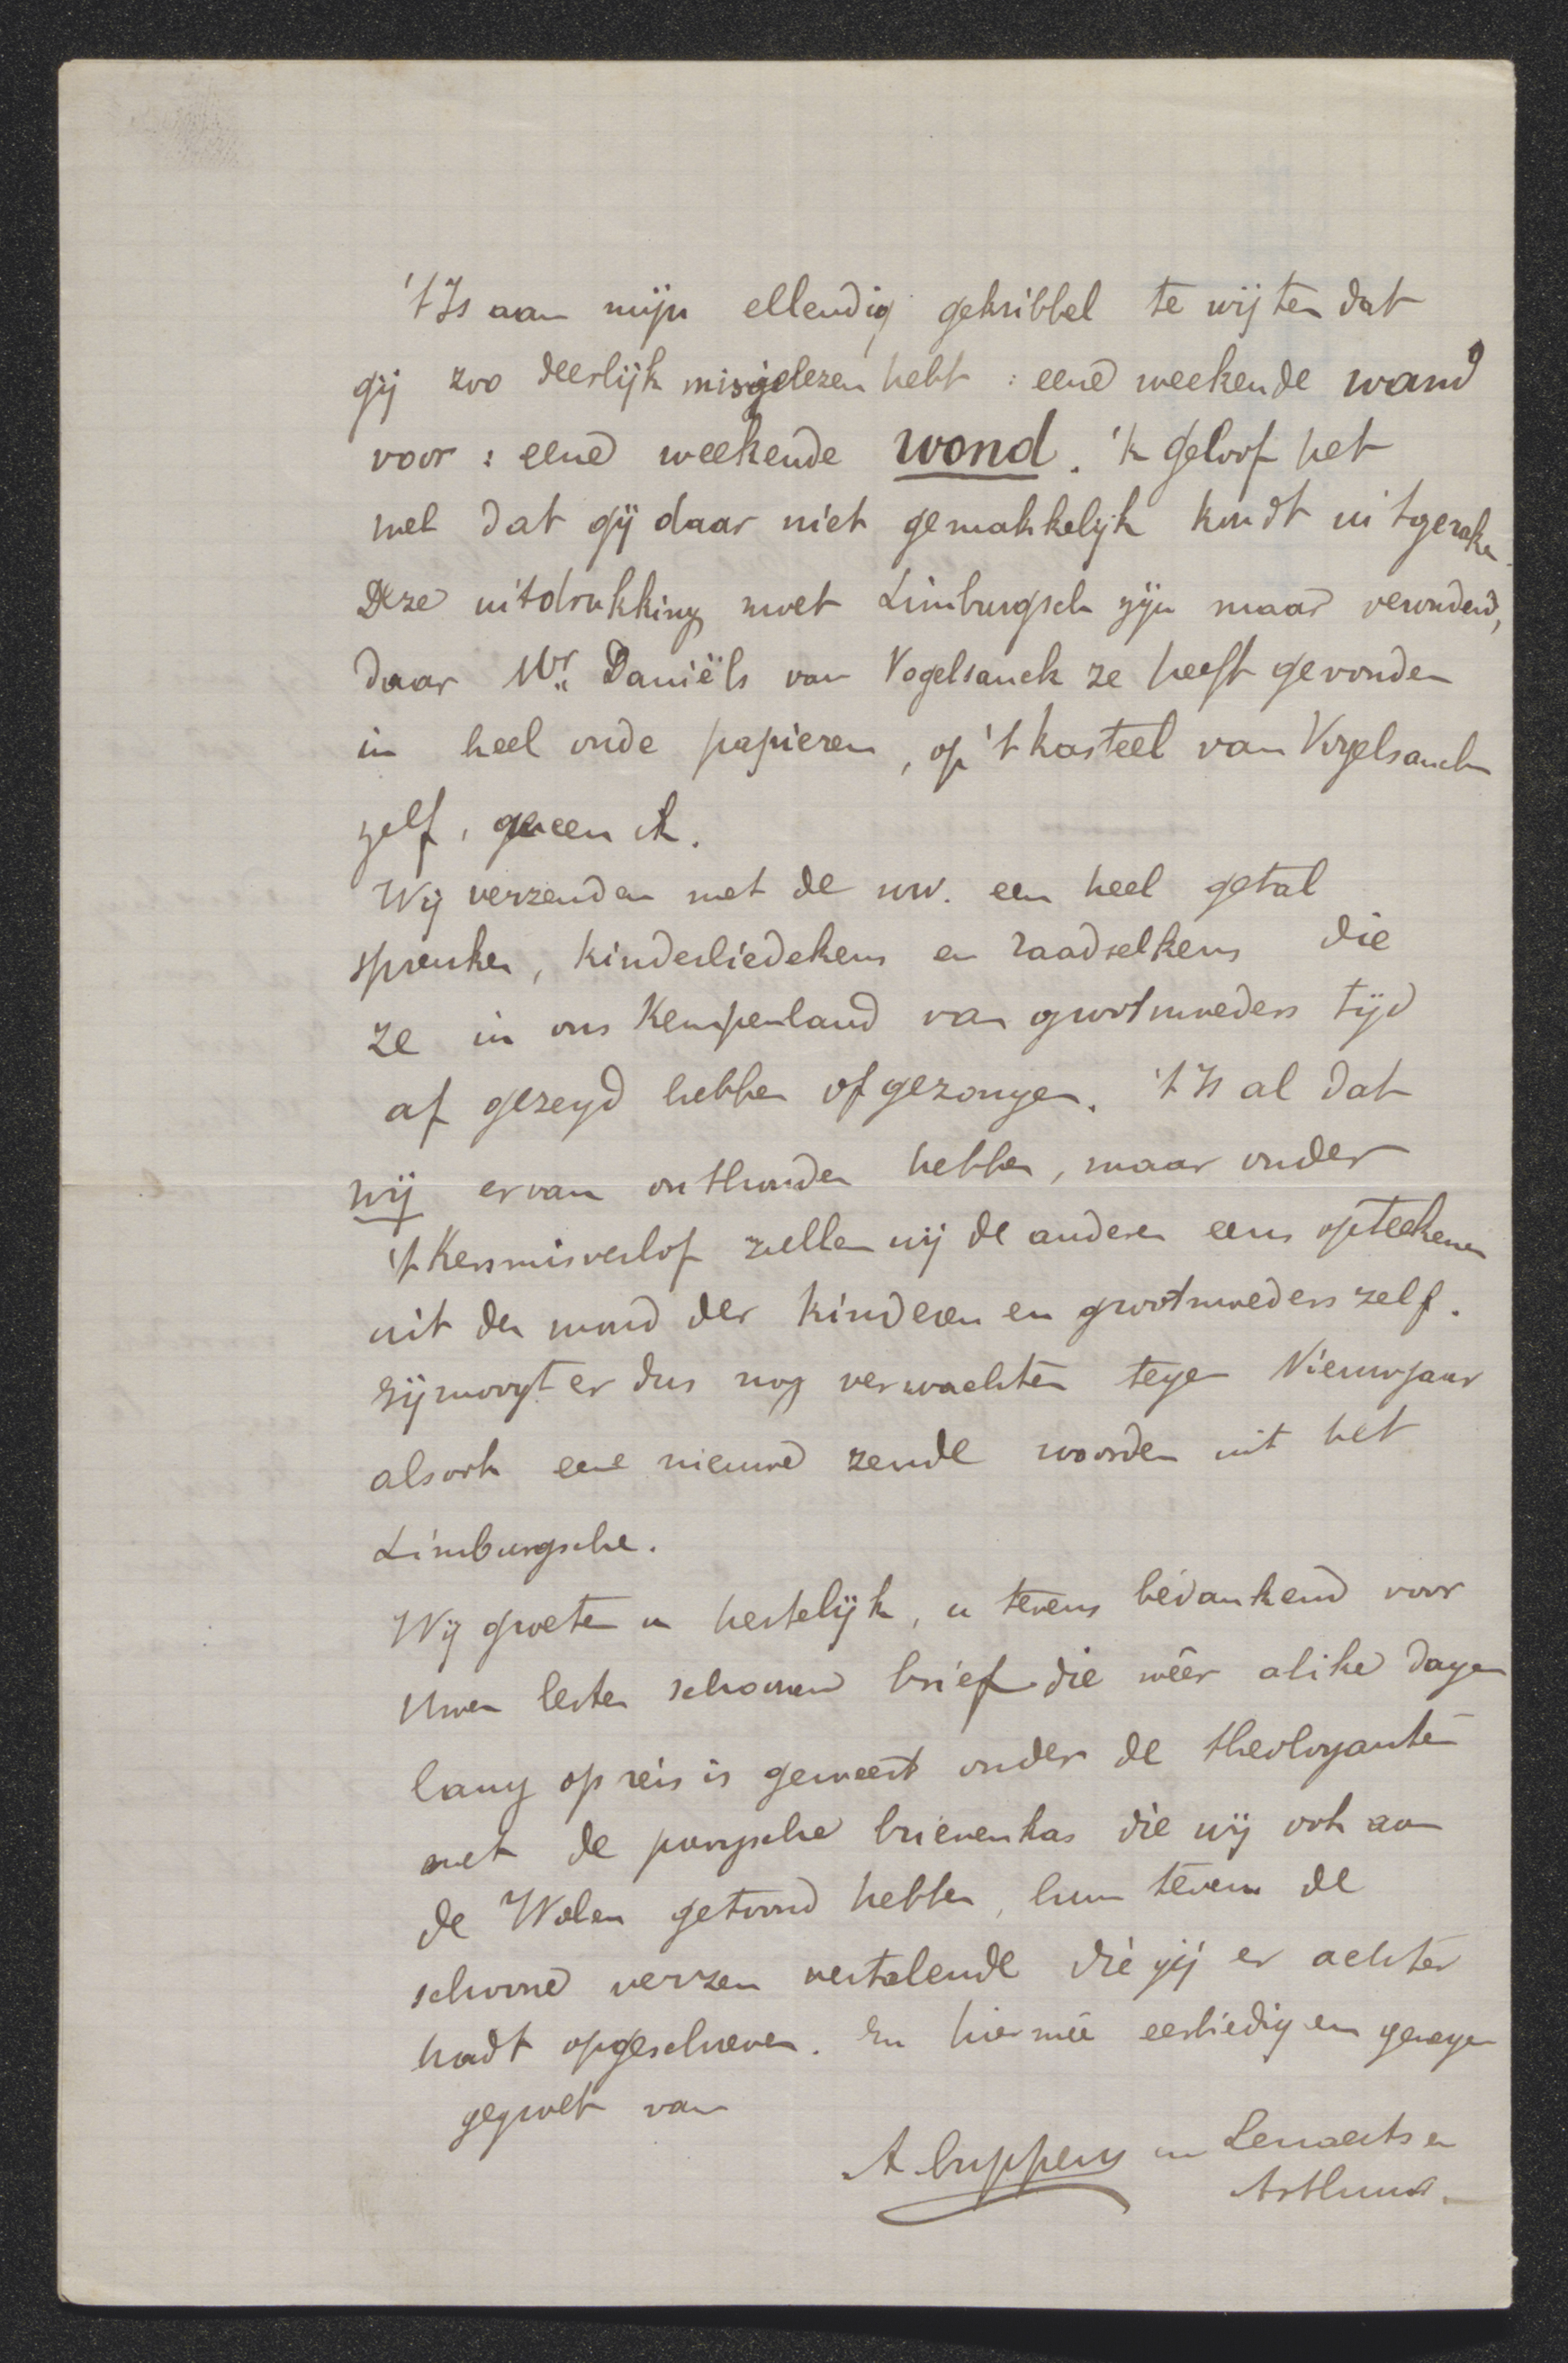 't Is aan mijn ellendig gekribbel te wijten dat
gij zoo deerlijk misgelezen hebt : eene weekende wand
voor : eene weekende wond. 'k Geloof het
wel dat gij daar niet gemakkelijk kondt uitgeraken.
Deze uitdrukking moet Limburgsch zijn maar verouderd,
daar Mr. Daniëls van Vogelsanck ze heeft gevonden
in heel oude papieren, op 't kasteel van Vogelsanck
zelf, meen ik.
Wij verzenden met de uw. een heel getal
spreuken, kinderliedekens en raadselkens die
ze in ons Kempenland van grootmoeders tijd
af gezeyd hebben of gezongen. 't Is al dat
wij ervan onthouden hebben, maar onder
't Kersmisverlof zullen wij de anderen eens opteekenen
uit den mond der kinderen en grootmoeders zelf.
Gij moogt er dus nog verwachten tegen Nieuwjaar
alsook eene nieuwe zende woorden uit het
Limburgsche.
Wij groeten u hertelijk, u tevens bedankend voor
Uwen lesten schoonen brief die wêer alike dagen
lang op reis is geweest onder de theologanten
met de brievenkas die wij ook aan
de Walen getoond hebben, hun tevens de
schoone verzen vertalende die gij er achter
hadt opgeschreven. En hiermêe eerbiedig en genegen
gegroet van
A Cuppens en Lenaerts en
Arthurs.